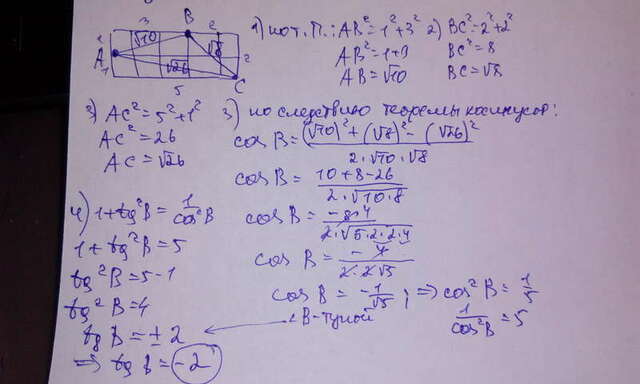 3 B 2
√10 √8
A 1 √26 2
5 C
1) по т. П.: AB²=1²+3²
AB²=1+9
AB=√10
2) BC²=2²+2²
BC²=8
BC=√8
3) AC²=5²+1²
AC²=26
AC=√26
3) по следствию теоремы косинусов:
cos B = ((√10)²+(√8)²-(√26)²)/(2·√10·√8)
cos B = (10+8-26)/(2√10·8)
cos B = (-8·4)/(2·√5·2·2·4)
cos B = (-4)/(2·2√5)
cos B = -1/√5 ; ⇒ cos²B = 1/5
1/cos²B = 5
4) 1+tg²B = 1/cos²B
1+tg²B=5
tg²B=5-1
tg²B=4
tg B = ± 2
∠B-тупой
⇒ tg B = -2